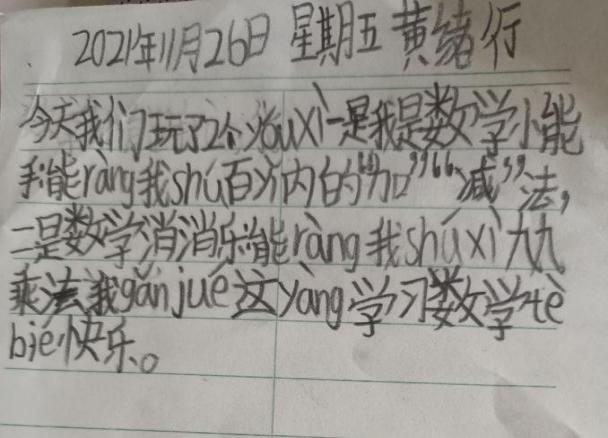 2021年11月26日 星期五 黄绪行
今天我们玩了2个yóuxì一是我是数学小能
手能ràng我shú百以内的“加”“减”法,
二是数学消消乐能ràng我shúxì九九
乘法我gǎnjué这yàng学习数学tè
bié快乐。